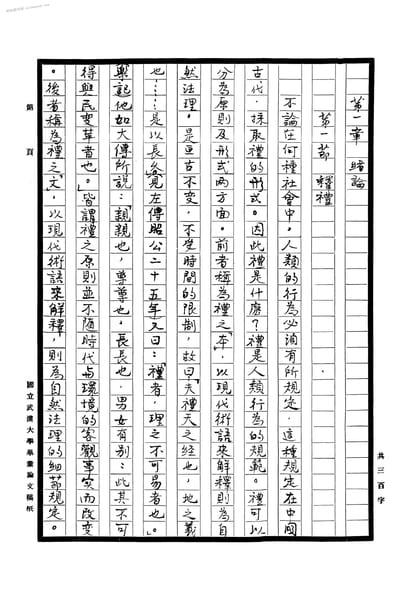 第一章 緒論
第一節 釋禮
不論在何種社會中。人類的行為必須有所規定，這種規定在中國
古代，採取禮的形式。因此禮是什麼？禮是人類行為的規範。禮可以
分為原則及形式兩方面。前者稱為禮之「本」，以現代術語來解釋則為自
然法理。是亙古不變，不受時間的限制，故曰「夫禮天之經也，地之義
也……是以長久」見左傳昭公二十五年又曰：「禮者，理之不可易者也」
樂記他如大傳所說：「親親也，尊尊也，長長也，男女有別：此其不可
得與民變革者也」。皆謂禮之原則並不隨時代與環境的客觀事實而改變
。後者稱為禮之「文」，以現代術語來解釋，則為自然法理的細節規定。
第 頁
國立武漢大學畢業論文稿紙
共三百字